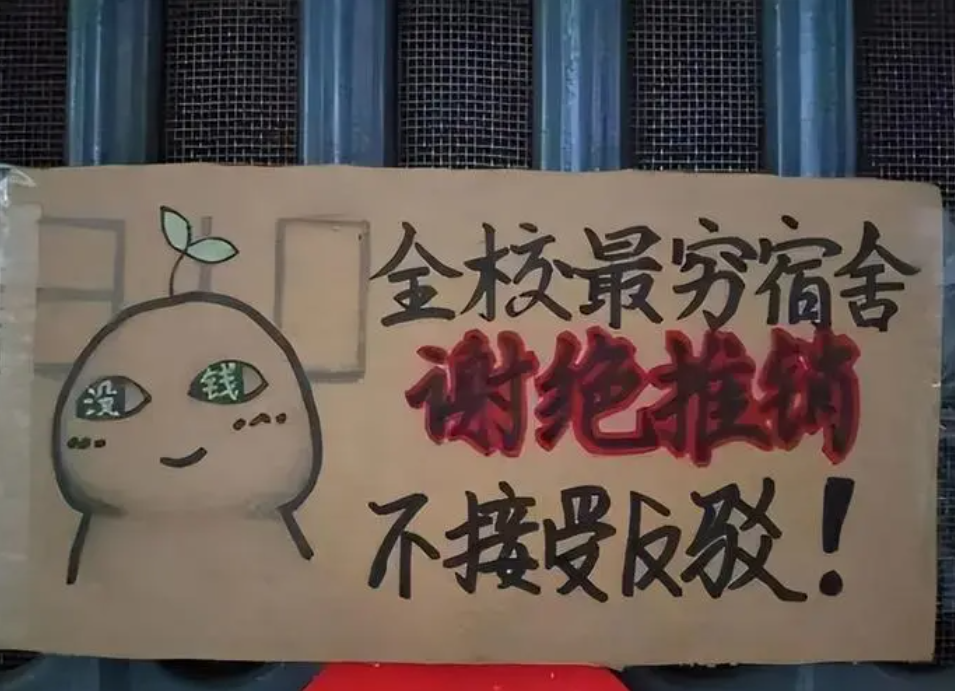 没 钱
全校最穷宿舍
谢绝推销
不接受反驳！